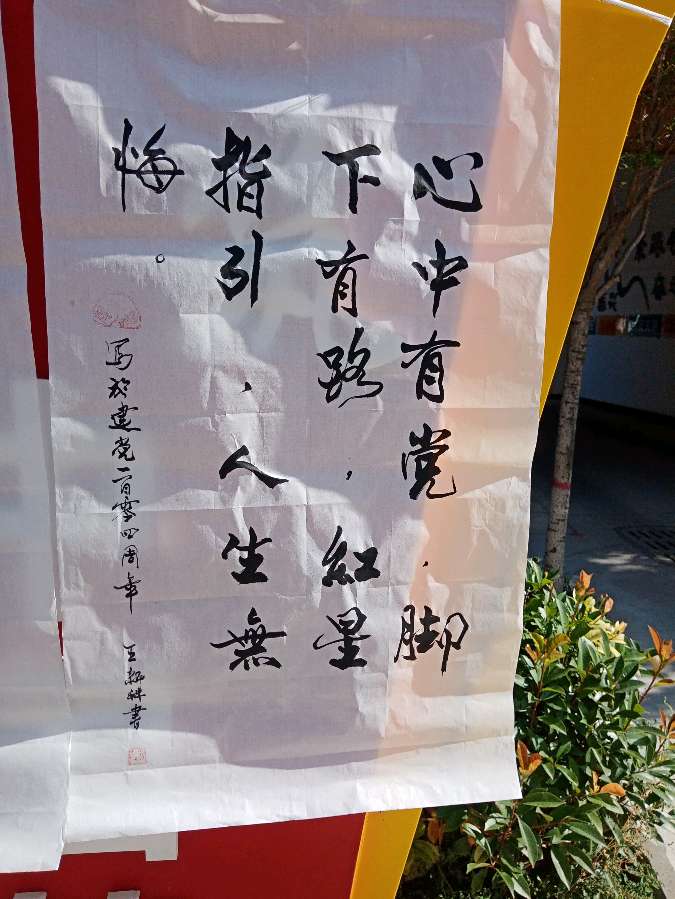 心中有党，脚
下有路，紅星
指引，人生無
悔。
写於建党一百零四周年 王 書